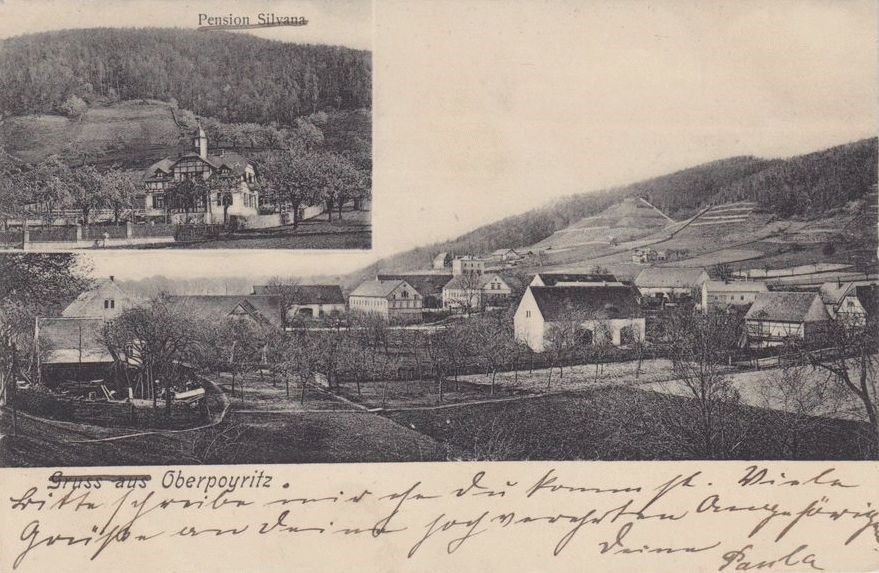 Pension Silvana
Gruss aus Oberpoyritz
Bitte schreibe mir ehe du kommst. Viele
Grüße an deine hochverehrten Angehörig
Deine Paula